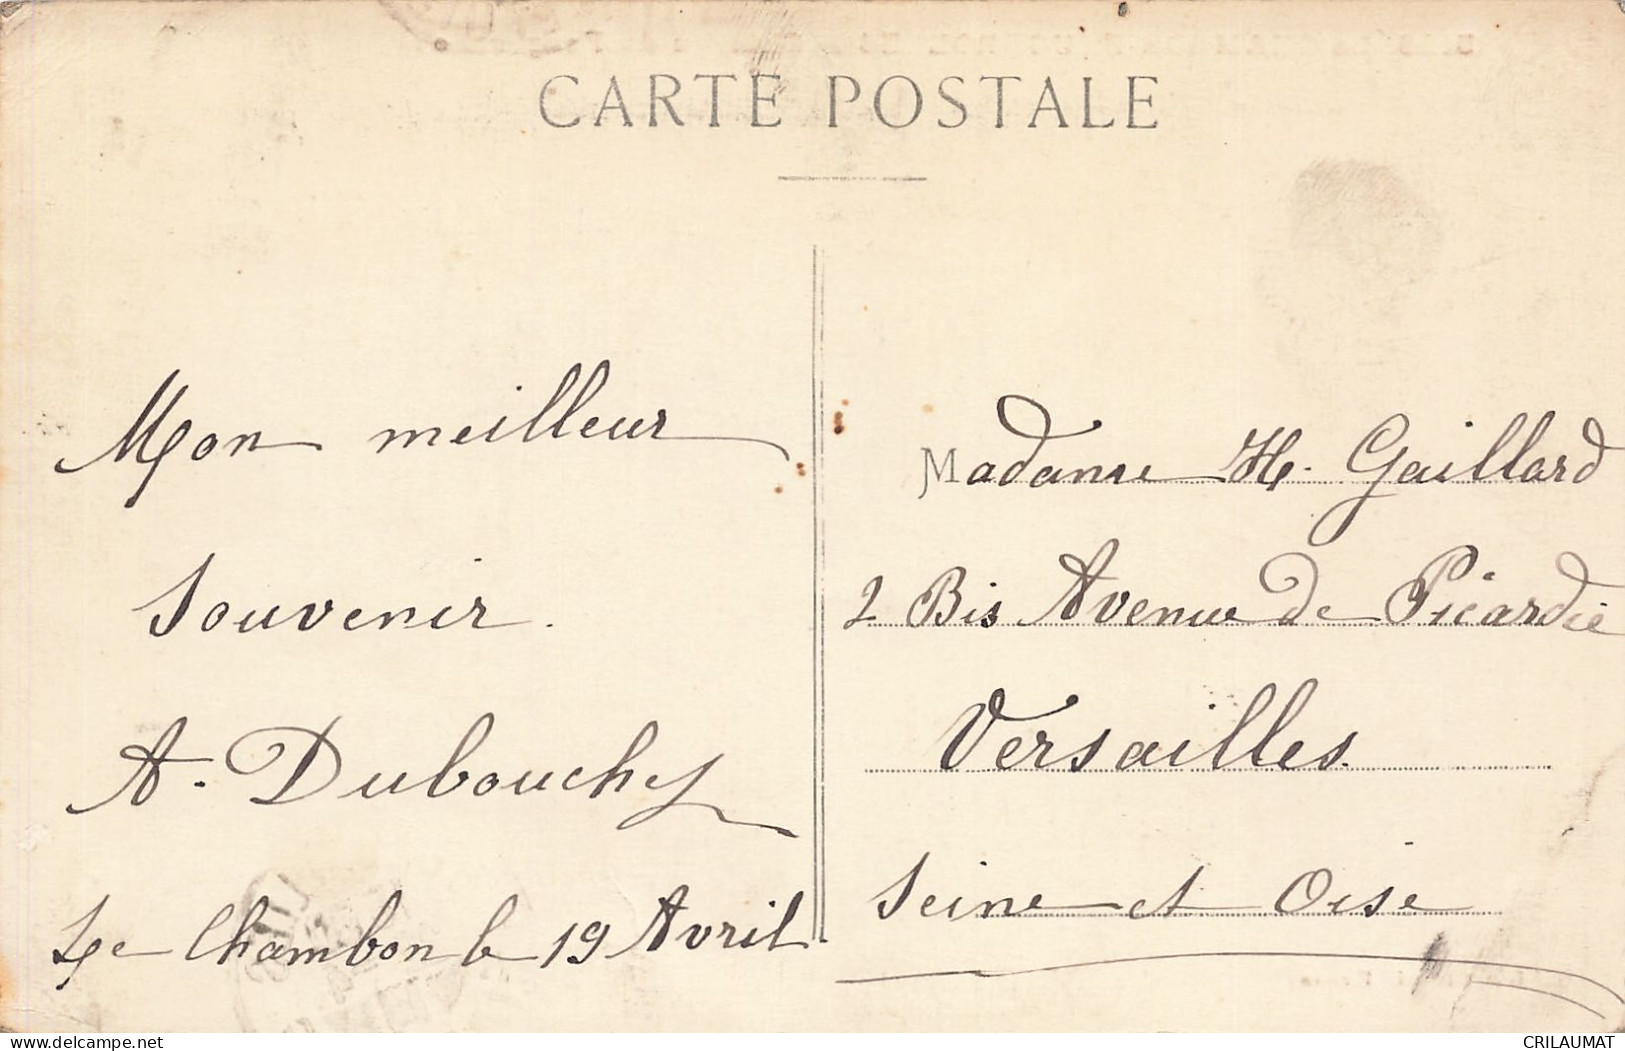 CARTE POSTALE
Mon meilleur
Souvenir.
A. Dubouchez
Le Chambon le 19 Avril.
Madame H. Gaillard
2 Bis Avenue de Picardie
Versailles.
Seine et Oise
delcampe.net
CRILAUMAT